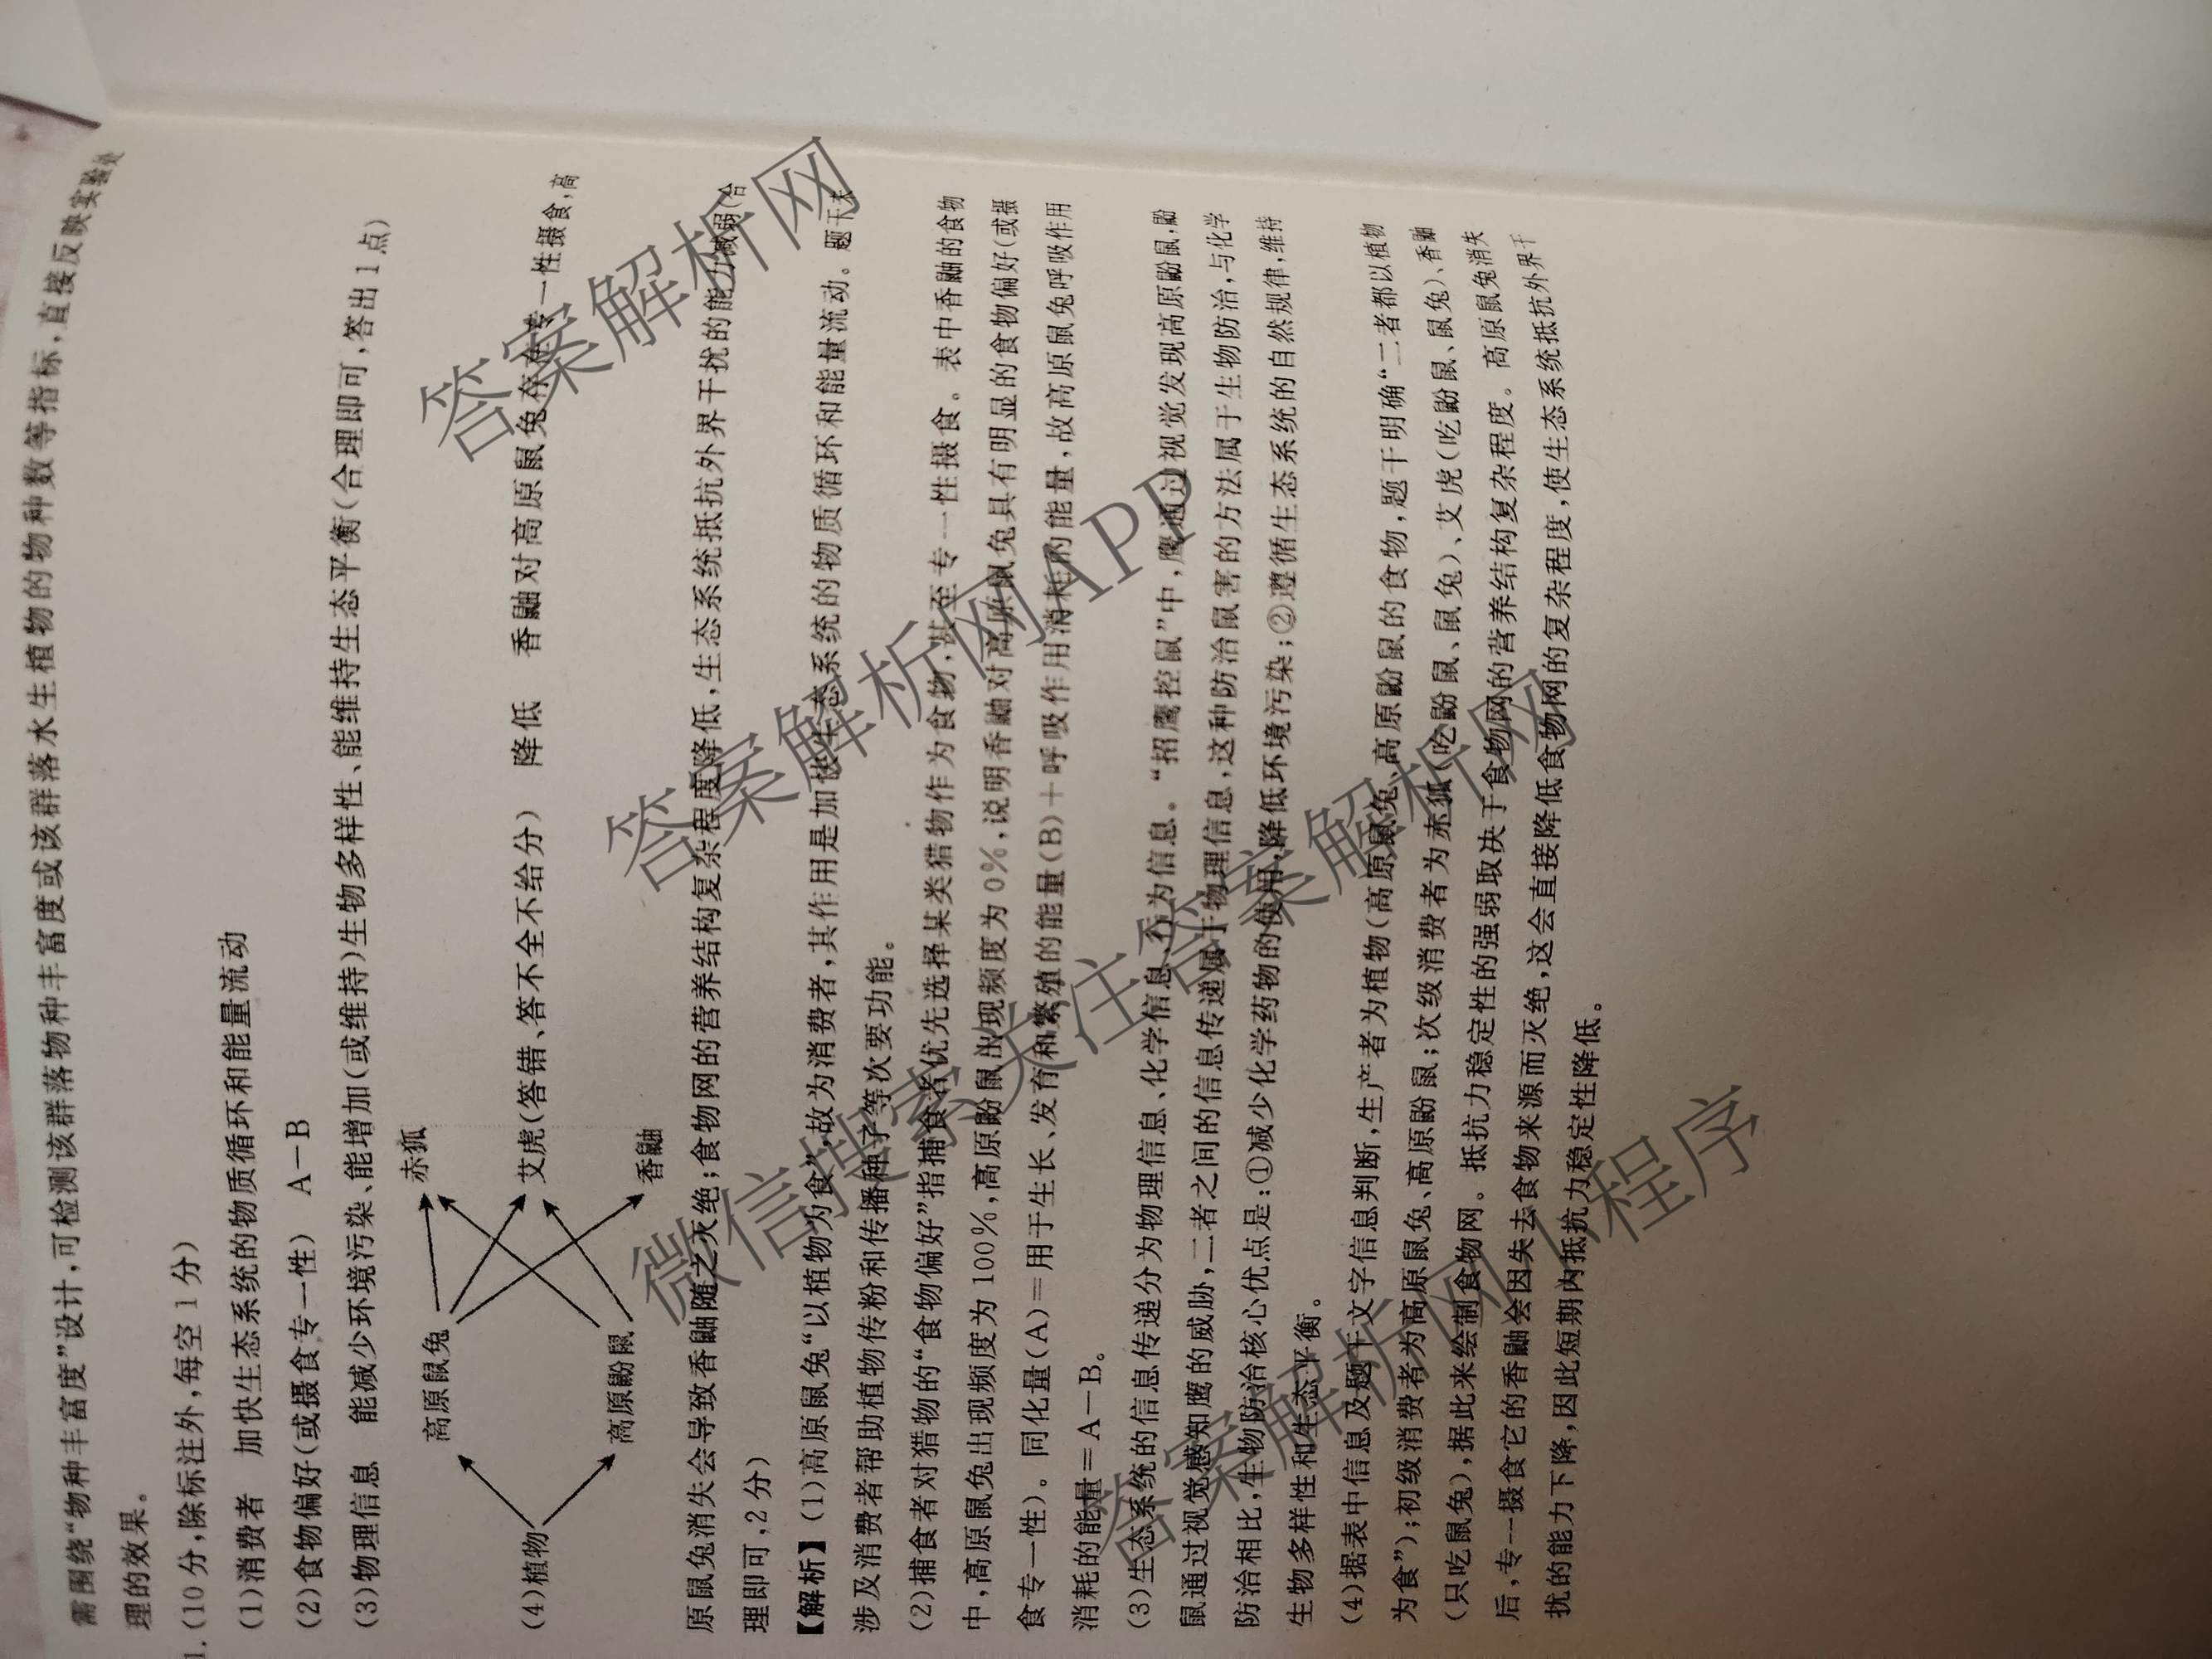 需围绕“物种丰富度”设计,可检测该群落物种丰富度或该群落水生植物的物种数等指标,直接反映实验处
理的效果。
1.(10分,除标注外,每空1分)
(1)消费者 加快生态系统的物质循环和能量流动
(2)食物偏好(或摄食专一性) A－B
(3)物理信息 能减少环境污染、能增加(或维持)生物多样性、能维持生态平衡(合理即可,答出1点)
赤狐
高原鼠兔
(4)植物 艾虎(答错、答不全不给分) 降低 香鼬对高原鼠兔存在专一性摄食,高
高原鼢鼠
香鼬
原鼠兔消失会导致香鼬随之灭绝;食物网的营养结构复杂程度降低,生态系统抵抗外界干扰的能力减弱(合
理即可,2分)
【解析】(1)高原鼠兔“以植物为食”,故为消费者,其作用是加快生态系统的物质循环和能量流动。题干未
涉及消费者帮助植物传粉和传播种子等次要功能。
(2)捕食者对猎物的“食物偏好”指捕食者优先选择某类猎物作为食物,甚至专一性摄食。表中香鼬的食物
中,高原鼠兔出现频度为100%,高原鼢鼠出现频度为0%,说明香鼬对高原鼠兔具有明显的食物偏好(或摄
食专一性)。同化量(A)＝用于生长、发育和繁殖的能量(B)＋呼吸作用消耗的能量,故高原鼠兔呼吸作用
消耗的能量＝A－B。
(3)生态系统的信息传递分为物理信息、化学信息、行为信息。“招鹰控鼠”中,鹰通过视觉发现高原鼢鼠,鼢
鼠通过视觉感知鹰的威胁,二者之间的信息传递属于物理信息,这种防治鼠害的方法属于生物防治,与化学
防治相比,生物防治核心优点是:①减少化学药物的使用,降低环境污染;②遵循生态系统的自然规律,维持
生物多样性和生态平衡。
(4)据表中信息及题干文字信息判断,生产者为植物(高原鼠兔、高原鼢鼠的食物,题干明确“二者都以植物
为食”);初级消费者为高原鼠兔、高原鼢鼠;次级消费者为赤狐(吃鼢鼠、鼠兔)、艾虎(吃鼢鼠、鼠兔)、香鼬
(只吃鼠兔),据此来绘制食物网。抵抗力稳定性的强弱取决于食物网的营养结构复杂程度。高原鼠兔消失
后,专一摄食它的香鼬会因失去食物来源而灭绝,这会直接降低食物网的复杂程度,使生态系统抵抗外界干
扰的能力下降,因此短期内抵抗力稳定性降低。
答案解析网
答案解析网APP
微信搜索关注答案解析网
答案解析网小程序